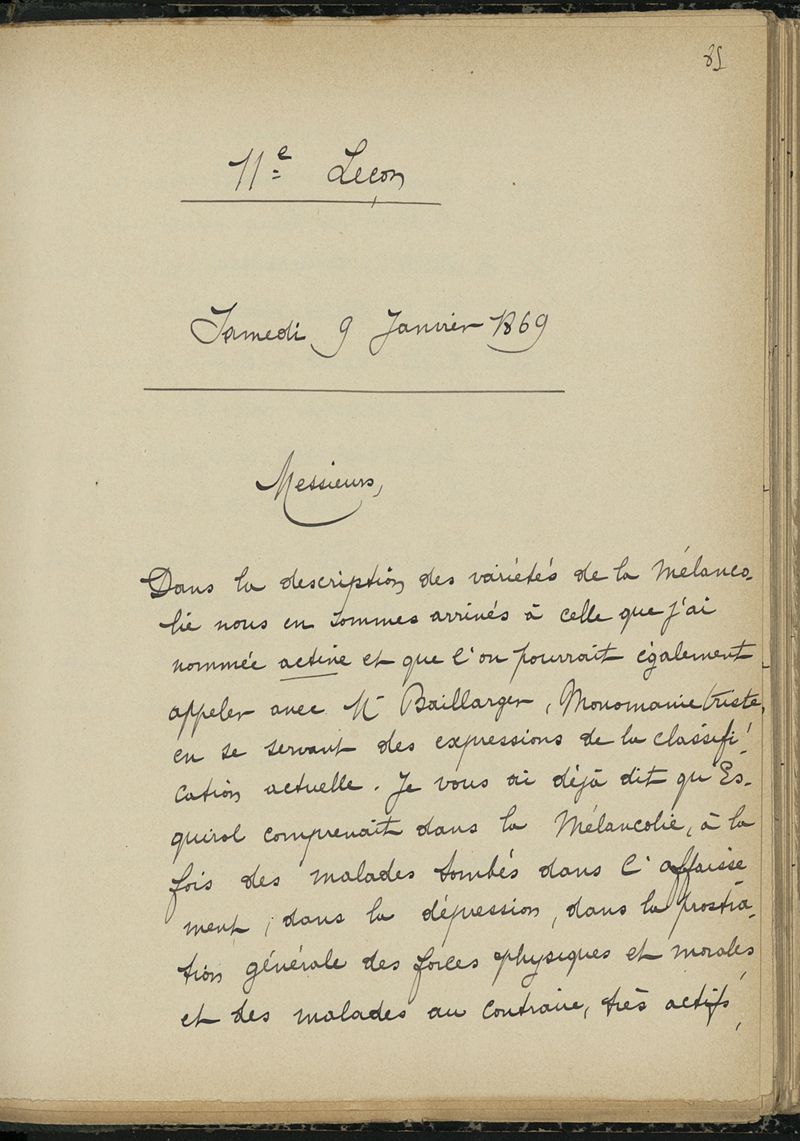 11e Leçon
Samedi 9 Janvier 1869
Messieurs,
Dans la description des variétés de la Mélanco-
lie nous en sommes arrivés à celle que j'ai
nommée active et que l'on pourrait également
appeler avec Mr Baillarger, Monomanie triste,
en se servant des expressions de la classifi-
cation actuelle. Je vous ai déjà dit qu'Es-
quirol comprenait dans la Mélancolie, à la
fois des malades tombés dans l'affaisse
ment, dans la dépression, dans la prostra-
tion générale des forces physiques et morales,
et des malades au contraire, très actifs,